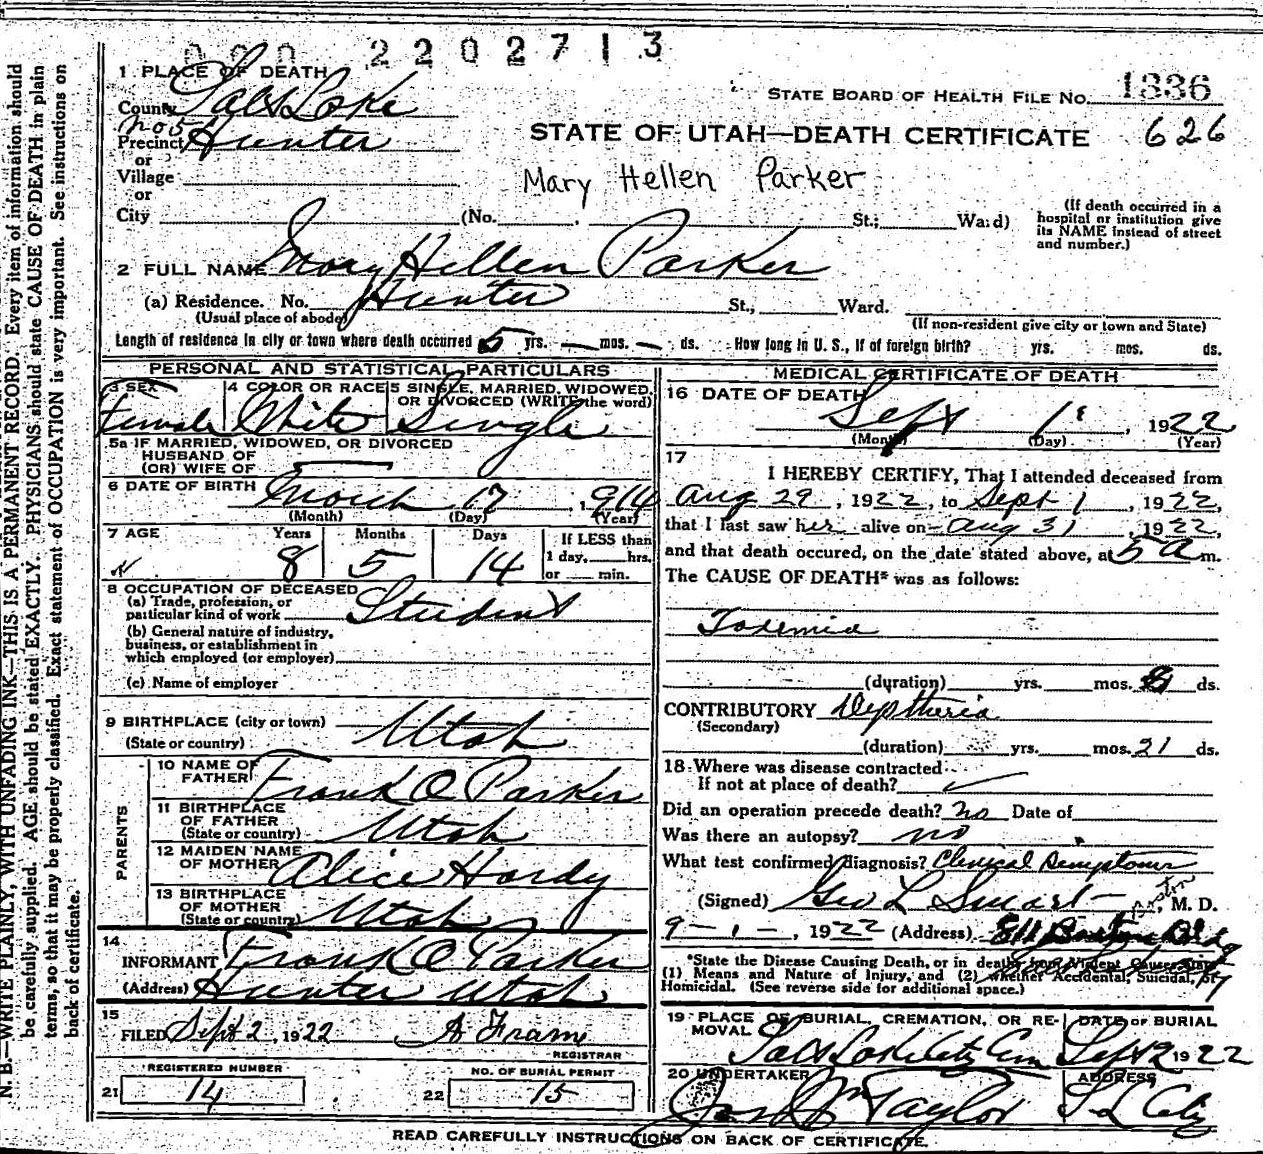 2202713
1 PLACE OF DEATH
County Salt Lake
STATE BOARD OF HEALTH FILE NO. 1336
no 5
Precinct Hunter
STATE OF UTAH—DEATH CERTIFICATE 626
or
Village
Mary Hellen Parker
or
City (No. , St.; Ward)
(If death occurred in a hospital or institution give its NAME instead of street and number.)
2 FULL NAME Mary Hellen Parker
(a) Residence. No. Hunter St., Ward.
(Usual place of abode) (If non-resident give city or town and State)
Length of residence in city or town where death occurred 5 yrs. — mos. — ds. How long in U. S., if of foreign birth? yrs. mos. ds.
PERSONAL AND STATISTICAL PARTICULARS
3 SEX Female
4 COLOR OR RACE White
5 SINGLE, MARRIED, WIDOWED, OR DIVORCED (WRITE the word) Single
5a IF MARRIED, WIDOWED, OR DIVORCED
HUSBAND OF
(OR) WIFE OF
6 DATE OF BIRTH March 17, 1914
(Month) (Day) (Year)
7 AGE Years 8 Months 5 Days 14
If LESS than
1 day, hrs.
or min.
8 OCCUPATION OF DECEASED
(a) Trade, profession, or
particular kind of work Student
(b) General nature of industry,
business, or establishment in
which employed (or employer)
(c) Name of employer
9 BIRTHPLACE (city or town)
(State or country) Utah
PARENTS
10 NAME OF
FATHER Frank O Parker
11 BIRTHPLACE
OF FATHER
(State or country) Utah
12 MAIDEN NAME
OF MOTHER Alice Hardy
13 BIRTHPLACE
OF MOTHER
(State or country) Utah
14
INFORMANT Frank O Parker
(Address) Hunter Utah
15
FILED Sept 2, 1922 A Frame
REGISTRAR
REGISTERED NUMBER
21 14
NO. OF BURIAL PERMIT
22 15
MEDICAL CERTIFICATE OF DEATH
16 DATE OF DEATH
Sept 1, 1922
(Month) (Day) (Year)
17
I HEREBY CERTIFY, That I attended deceased from
Aug 29, 1922, to Sept 1, 1922,
that I last saw her alive on Aug 31, 1922,
and that death occured, on the date stated above, at 5 a m.
The CAUSE OF DEATH* was as follows:
Toxemia
(duration) yrs. mos. ds.
CONTRIBUTORY Dyptheria
(Secondary)
(duration) yrs. mos. 21 ds.
18 Where was disease contracted
If not at place of death?
Did an operation precede death? no Date of
Was there an autopsy? no
What test confirmed diagnosis? Clinical Symptoms
(Signed) Geo L Smart, M. D.
9 - 1 -, 1922 (Address) Boston Bldg
*State the Disease Causing Death, or in deaths from Violent Causes, State
(1) Means and Nature of Injury, and (2) whether Accidental, Suicidal, or
Homicidal. (See reverse side for additional space.)
19 PLACE OF BURIAL, CREMATION, OR RE-
MOVAL Salt Lake City Cem
DATE OF BURIAL
Sept 2 1922
20 UNDERTAKER
Jos Wm Taylor
ADDRESS
S L City
READ CAREFULLY INSTRUCTIONS ON BACK OF CERTIFICATE.
N. B.—WRITE PLAINLY, WITH UNFADING INK—THIS IS A PERMANENT RECORD. Every item of information should
be carefully supplied. AGE should be stated EXACTLY. PHYSICIANS should state CAUSE OF DEATH in plain
terms, so that it may be properly classified. Exact statement of OCCUPATION is very important. See instructions on
back of certificate.